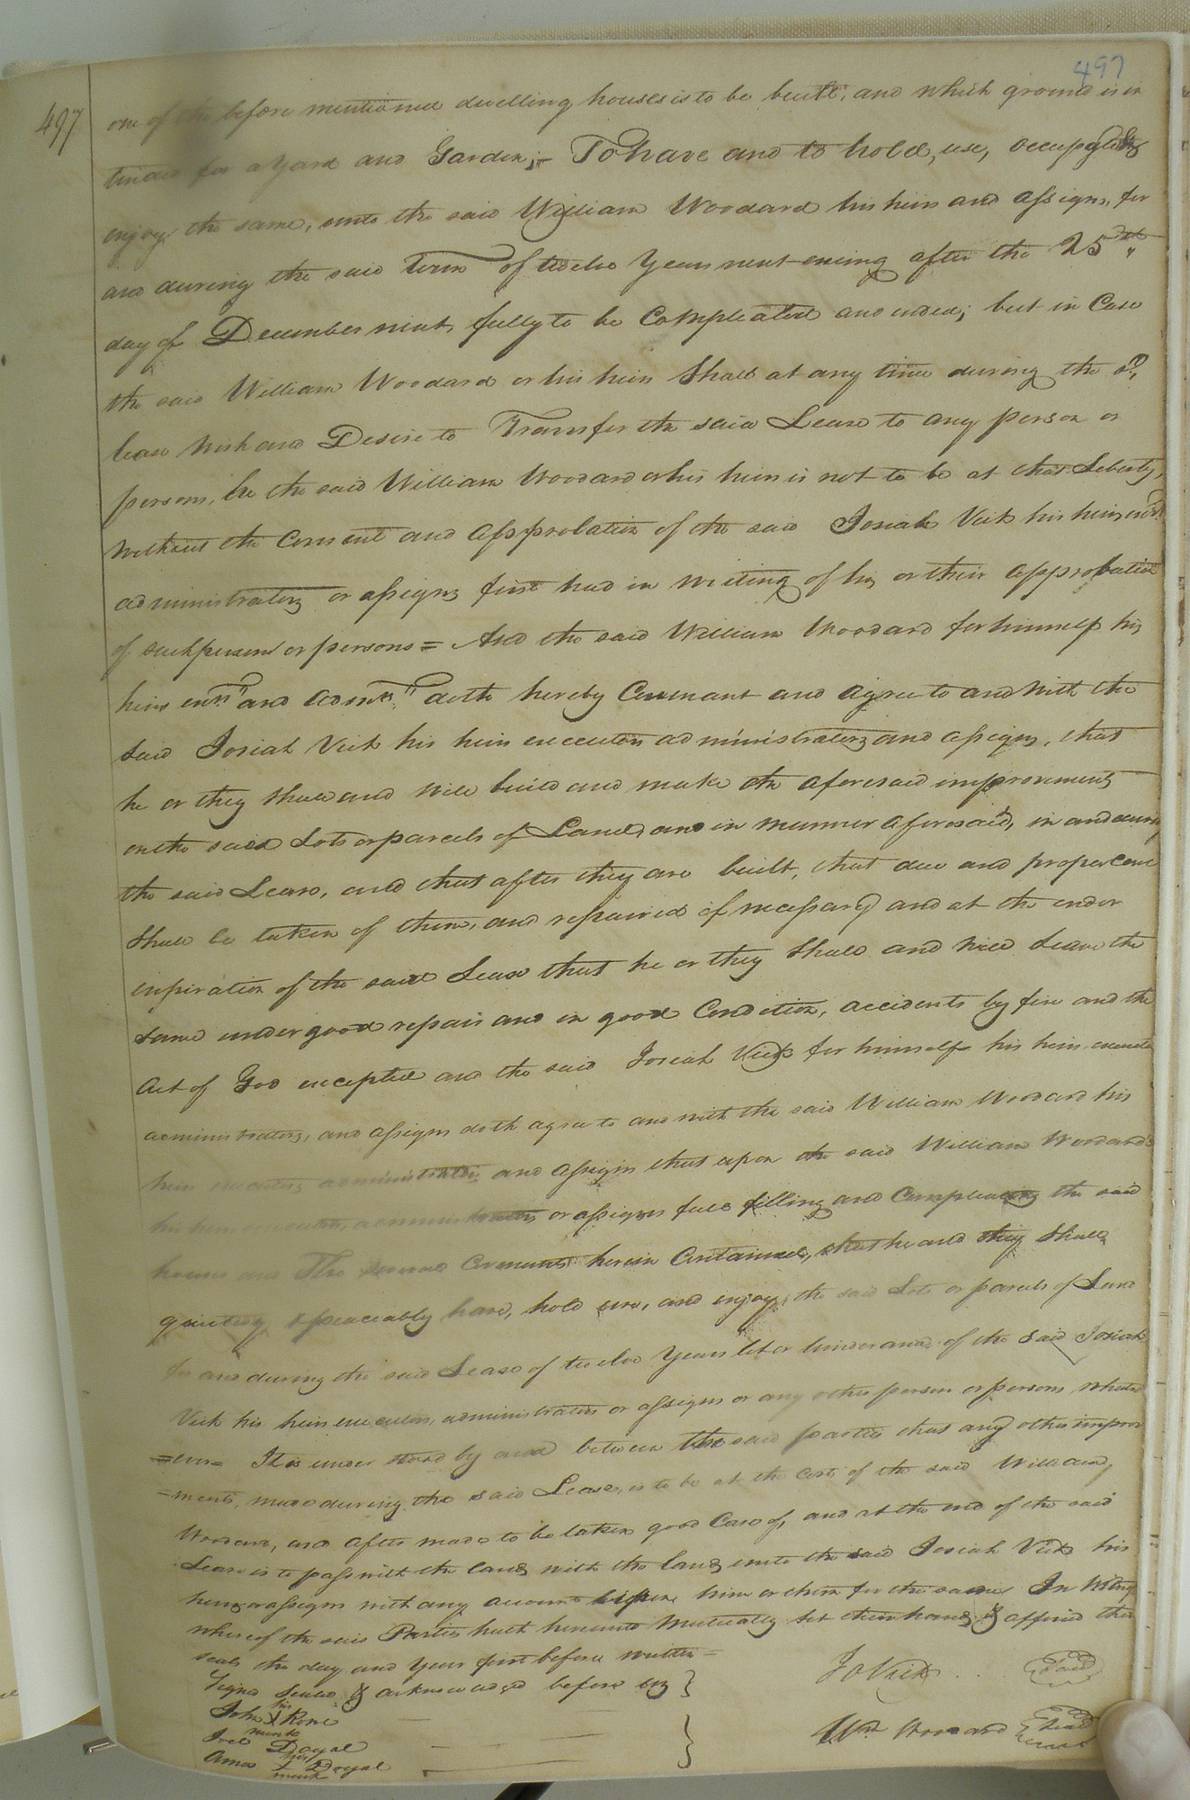 497
497
one of the before mentioned dwelling houses is to be built, and which ground is in
tended for a yard and Garden;- To have and to hold, use, occupy &
enjoy the same, unto the said William Woodard his heirs and assigns, for
and during the said term of twelve Years next ensuing after the 25th
day of December next, fully to be Compleated and ended; but in Case
the said William Woodard or his heirs Shall at any time during the sd.
lease wish and Desire to Transfer the said Lease to any person or
persons, he the said William Woodard or his heirs is not to be at that Liberty,
without the Consent and Approbation of the said Josiah Vick his heirs, exrs
administrators or assigns first had in writing of his or their approbation
of such person or persons = And the said William Woodard for himself his
heirs exrs and admrs doth hereby Covenant and agree to and with the
said Josiah Vick his heirs executors administrators and assigns, that
he or they Shall and will build and make the aforesaid improvements
on the said Lots or parcels of Land, and in manner aforesaid, in and during
the said Lease, and that after they are built, that due and proper care
shall be taken of them, and repaired if necessary and at the end or
expiration of the said Lease that he or they Shall and will Leave the
same under good repair and in good Condition, accidents by fire and the
Act of God excepted and the said Josiah Vick for himself his heirs executors
administrators, and assigns doth agree to and with the said William Woodard his
heirs executors, administrators and assigns that upon the said William Woodard
his heirs executors, administrators or assigns full filling and Compleating the said
houses and The several Covenants herein Contained, that he and they Shall
quietly & peaceably have, hold use, and enjoy, the said Lots or parcels of Land
for and during the said Lease of twelve Years let or hinderance of the said Josiah
Vick his heirs executors, administrators or assigns or any other person or persons whatso
=ever= It is under stood by and between the said parties that any other improve
=ments, made during the said Lease, is to be at the Cost of the said William
Woodard, and after made to be taken good Care of, and at the end of the said
Lease is to pass with the land, with the land, unto the said Josiah Vick his
heirs or assigns with any account him or them for the same In Witness
whereof the said Parties hath hereunto Mutually Set their hands & affixed their
seals the day and Year first before written =
Signed Sealed & acknowledged before us }
Jo Vick . . (Seal)
his
John X Rone
mark
Joel Doyal
Wm Woodard (Seal)
his
Amos + Doyal
mark